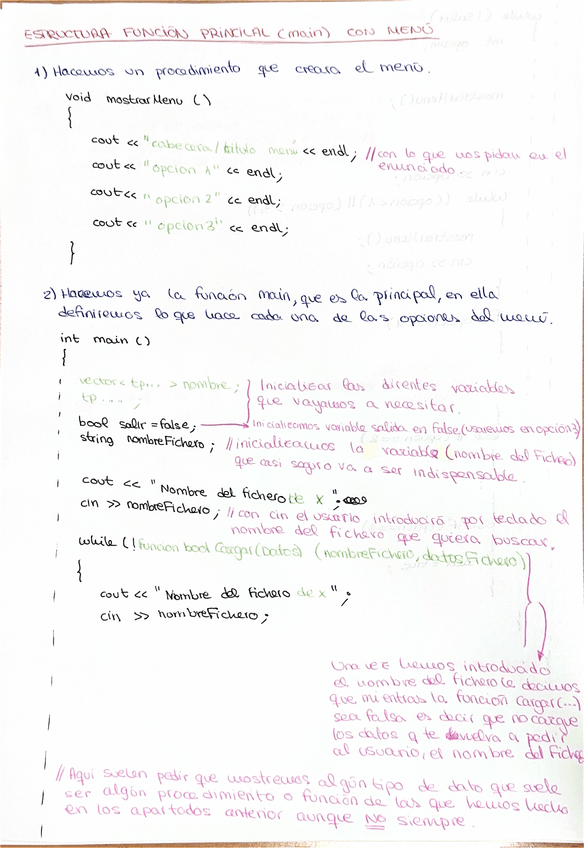 ESTRUCTURA FUNCIÓN PRINCILAL (main) CON MENÚ
1) Hacemos un procedimiento que creara el menú.
void mostrarMenu ()
{
cout << "cabecera / titulo menú << endl; // con lo que nos pidan en el
enunciado.
cout << "opcion 1" << endl;
cout << "opcion 2" << endl;
cout << "opcion 3" << endl;
}
2) Hacemos ya la función main, que es la principal, en ella
definiremos lo que hace cada una de las opciones del menú.
int main ()
{
vector < tp... > nombre; Inicializar las diferentes variables
tp ....; que vayamos a necesitar.
bool salir = false; Inicializamos variable salida en False (usaremos en opción 3)
string nombreFichero; // inicializamos la variable (nombre del Fichero)
que casi seguro va a ser indispensable.
cout << "Nombre del fichero de x ";
cin >> nombreFichero; // con cin el usuario introducirá por teclado el
nombre del fichero que quiera buscar.
while (!funcion bool Cargar(Datos) (nombreFichero, datosFichero)
{
cout << "Nombre del fichero de x ";
cin >> nombreFichero;
Una vez hemos introducido
el nombre del fichero le decimos
que mientras la función Cargar(...)
sea falsa es decir que no cargue
los datos q te devuelva a pedir
al usuario, el nombre del Fichero
// Aqui suelen pedir que mostremos algún tipo de dato que suele
ser algún procedimiento o función de las que hemos hecho
en los apartados anterior aunque NO siempre.